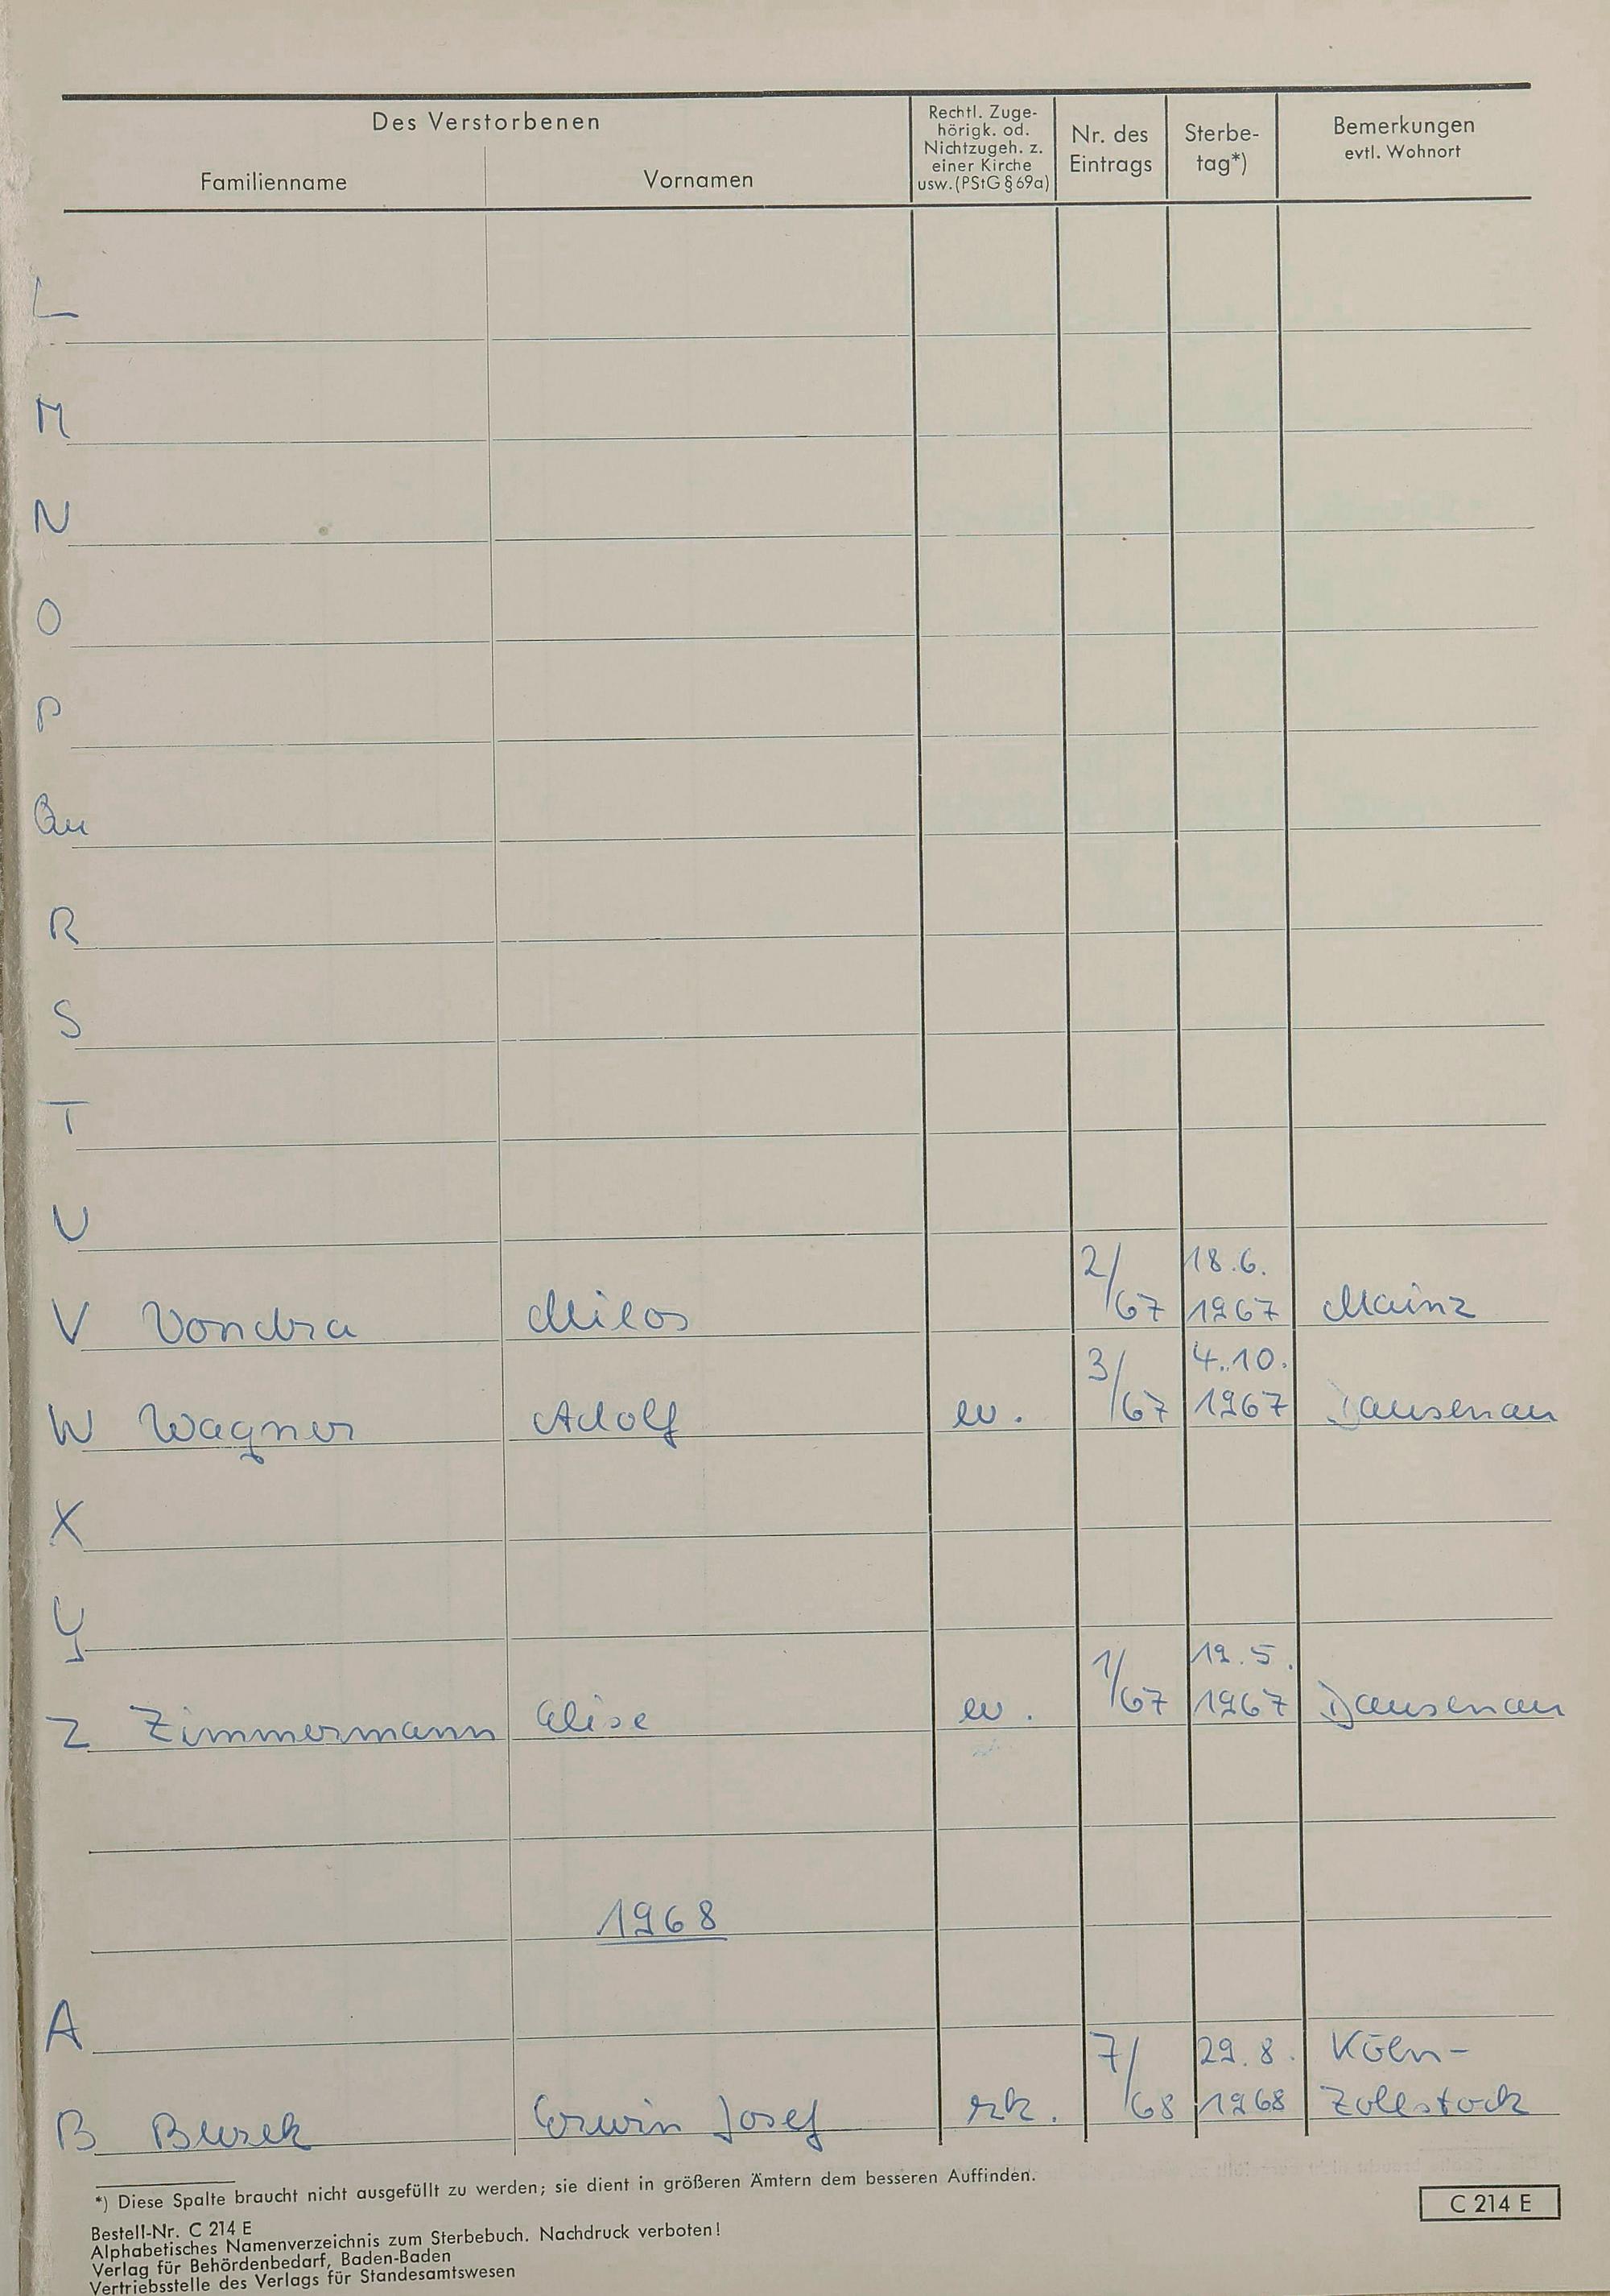 Des Verstorbenen
Familienname
Vornamen
Rechtl. Zuge-
hörigk. od.
Nichtzugeh. z.
einer Kirche
usw. (PStG § 69a)
Nr. des
Eintrags
Sterbe-
tag*)
Bemerkungen
evtl. Wohnort
L
M
N
O
P
Qu
R
S
T
U
V Vondra Milos 2/67 18.6. 1967 Mainz
W Wagner Adolf ev. 3/67 4.10. 1967 Dausenau
X
Y
Z Zimmermann Elise ev. 1/67 19.5. 1967 Dausenau
1968
A
B Erwin Josef rk. 7/68 29.8. 1968 Köln-
Zollstock
*) Diese Spalte braucht nicht ausgefüllt zu werden; sie dient in größeren Ämtern dem besseren Auffinden.
C 214 E
Bestell-Nr. C 214 E
Alphabetisches Namenverzeichnis zum Sterbebuch. Nachdruck verboten!
Verlag für Behördenbedarf, Baden-Baden
Vertriebsstelle des Verlags für Standesamtswesen